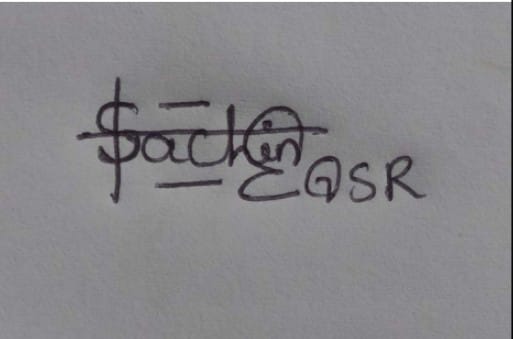 Sachin
QSR